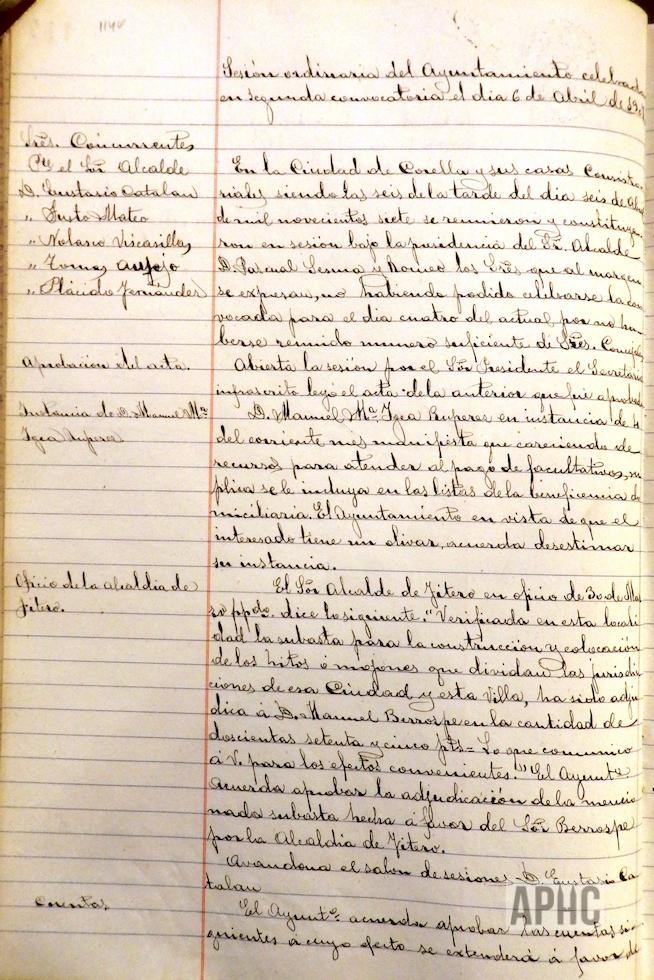 114v
Sesión ordinaria del Ayuntamiento celebrada
en segunda convocatoria el dia 6 de Abril de 1907
Sres. Concurrentes
Pte el Sor Alcalde
D. Eustasio Catalan
" Justo Mateo
" Nolasco Viscasillas
" Tomas
" Plácido Fernández
En la Ciudad de Corella y sus casas Consisto-
riales, siendo las seis de la tarde del dia seis de Abril
de mil novecientos siete se reunieron y constituye-
ron en sesión bajo la presidencia del Sr. Alcalde
D. Pascual Sesma y Romeo los Sres, que al margen
se expresan, no habiendo podido celebrarse la con-
vocada para el dia cuatro del actual por no ha-
berse reunido numero suficiente de Sres. Concejales
Aprobación del acta.
Abierta la sesión por el Sor Presidente el Secretario
infrascrito leyó el acta de la anterior que fué aprobada
Instancia de D. Manuel Ma.
Igea Ruperez
D. Manuel Ma. Igea Ruperez en instancia de 4
del corriente mes manifiesta que careciendo de
recursos para atender al pago de facultativos, su-
plica se le incluya en las listas de la beneficencia do-
miciliaria. El Ayuntamiento en vista de que el
interesado tiene un olivar, acuerda desestimar
su instancia.
Oficio de la alcaldia de
Fitero.
El Sor Alcalde de Fitero en oficio de 30 de Mar-
zo ppdo. dice lo siguiente. "Verificada en esta locali-
dad la subasta para la construccion y colocación
de los hitos ó mojones que dividan las jurisdic-
ciones de esa Ciudad y esta Villa, ha sido adju-
dica á D. Manuel Berrospe en la cantidad de
doscientas setenta y cinco pts = Lo que comunico
á V. para los efectos convenientes." El Ayunto
acuerda aprobar la adjudicación de la mencio-
nada subasta hecha á favor del Sor Berrospe
por la Alcaldia de Fitero.
Abandona el salon de sesiones D. Eustasio Ca-
talan
Cuentas
El Ayunto. acuerda aprobar las cuentas si-
guientes á cuyo efecto se extenderá á favor de
APHC